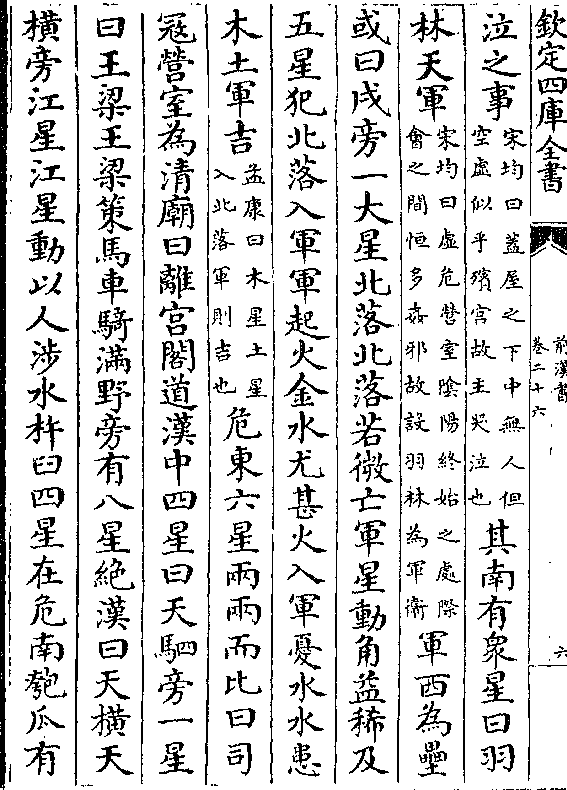 欽定四庫全書
前漢書
卷二十六
六
泣之事宋均曰葢屋之下中無人但空虛似乎殯宮故主哭泣也其南有衆星曰羽
林天軍宋均曰虛危營室隂陽終始之處際會之間恒多姦邪故設羽林為軍衛軍西為壘
或曰戌旁一大星北落北落若微亡軍星動角益稀及
五星犯北落入軍軍起火金水尤甚火入軍憂水水患
木土軍吉孟康曰木星土星入北落軍則吉也危東六星兩兩而比曰司
冦營室為清廟曰離宮閣道漢中四星曰天駟旁一星
曰王梁王梁策馬車騎滿野旁有八星絶漢曰天橫天
橫旁江星江星動以人涉水杵臼四星在危南匏瓜有